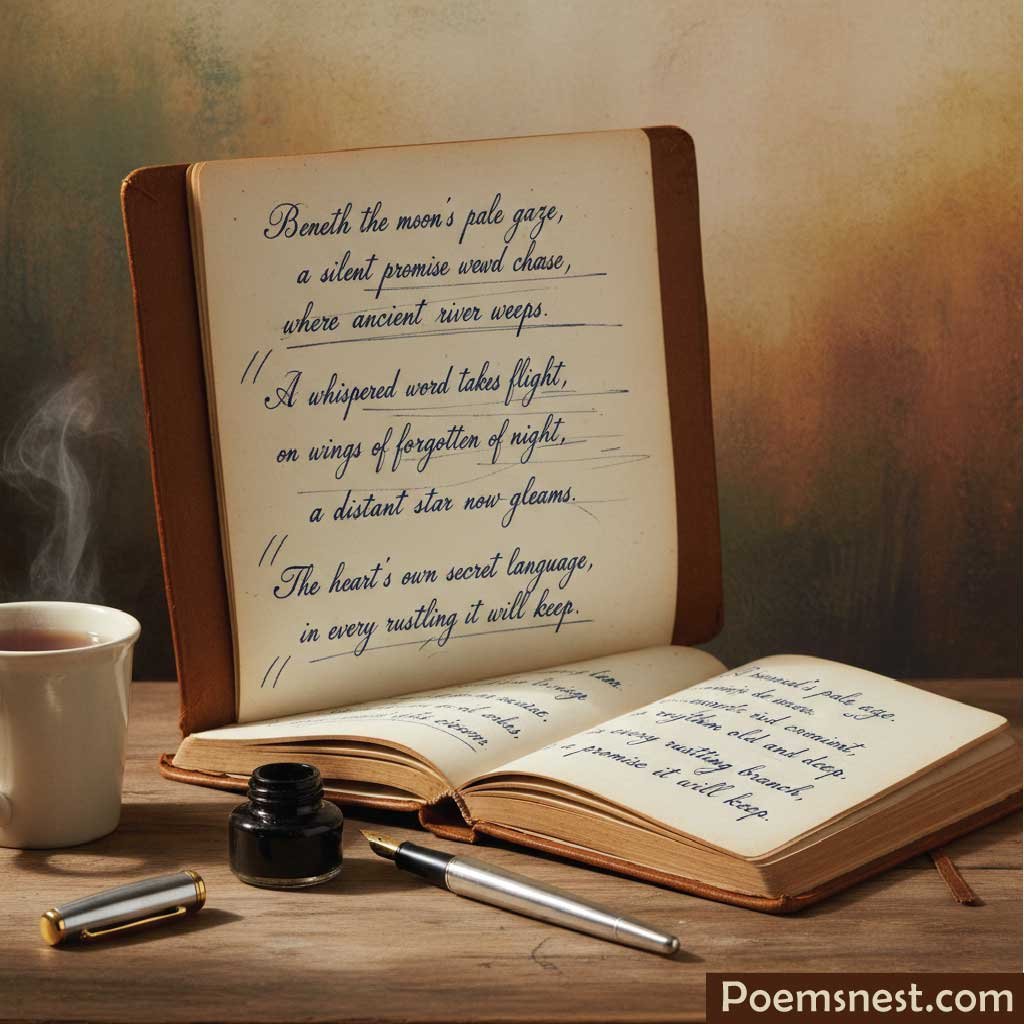 Beneth the moon's pale gaze,
a silent promise wewd chase,
where ancient river weeps.
//
A whispered word takes flight,
on wings of forgotten of night,
a distant star now gleams.
//
The heart's own secret language,
in every rustling it will keep.
//
pale age.
old and deep.
every rustling branch,
a promise it will keep.
Poemsnest.com